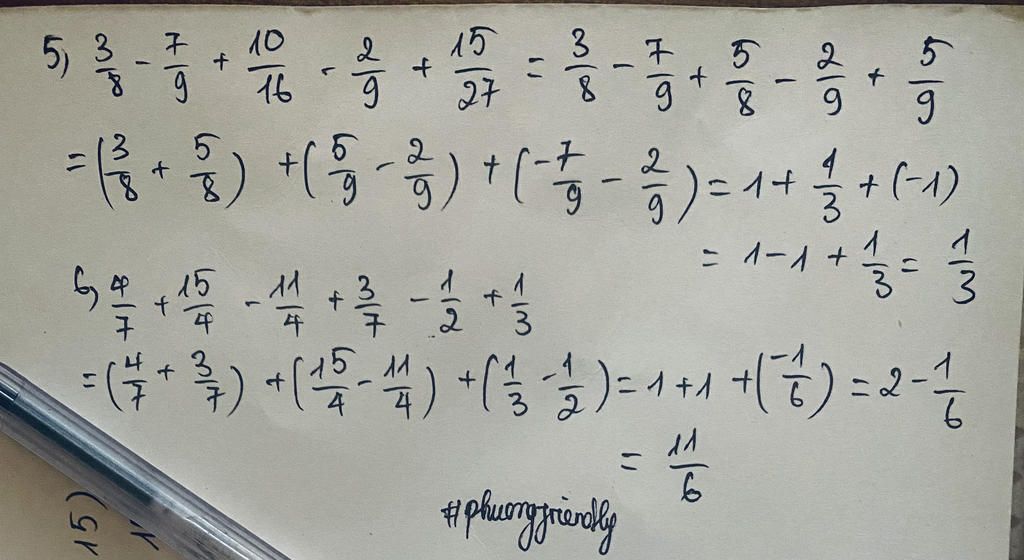 5, 3/8 - 7/9 + 10/16 - 2/9 + 15/27 = 3/8 - 7/9 + 5/8 - 2/9 + 5/9
= (3/8 + 5/8) + (5/9 - 2/9) + (-7/9 - 2/9) = 1 + 1/3 + (-1)
= 1 - 1 + 1/3 = 1/3
6, 4/7 + 15/4 - 11/4 + 3/7 - 1/2 + 1/3
= (4/7 + 3/7) + (15/4 - 11/4) + (1/3 - 1/2) = 1 + 1 + (-1/6) = 2 - 1/6
= 11/6
#phuongfriendly
15)